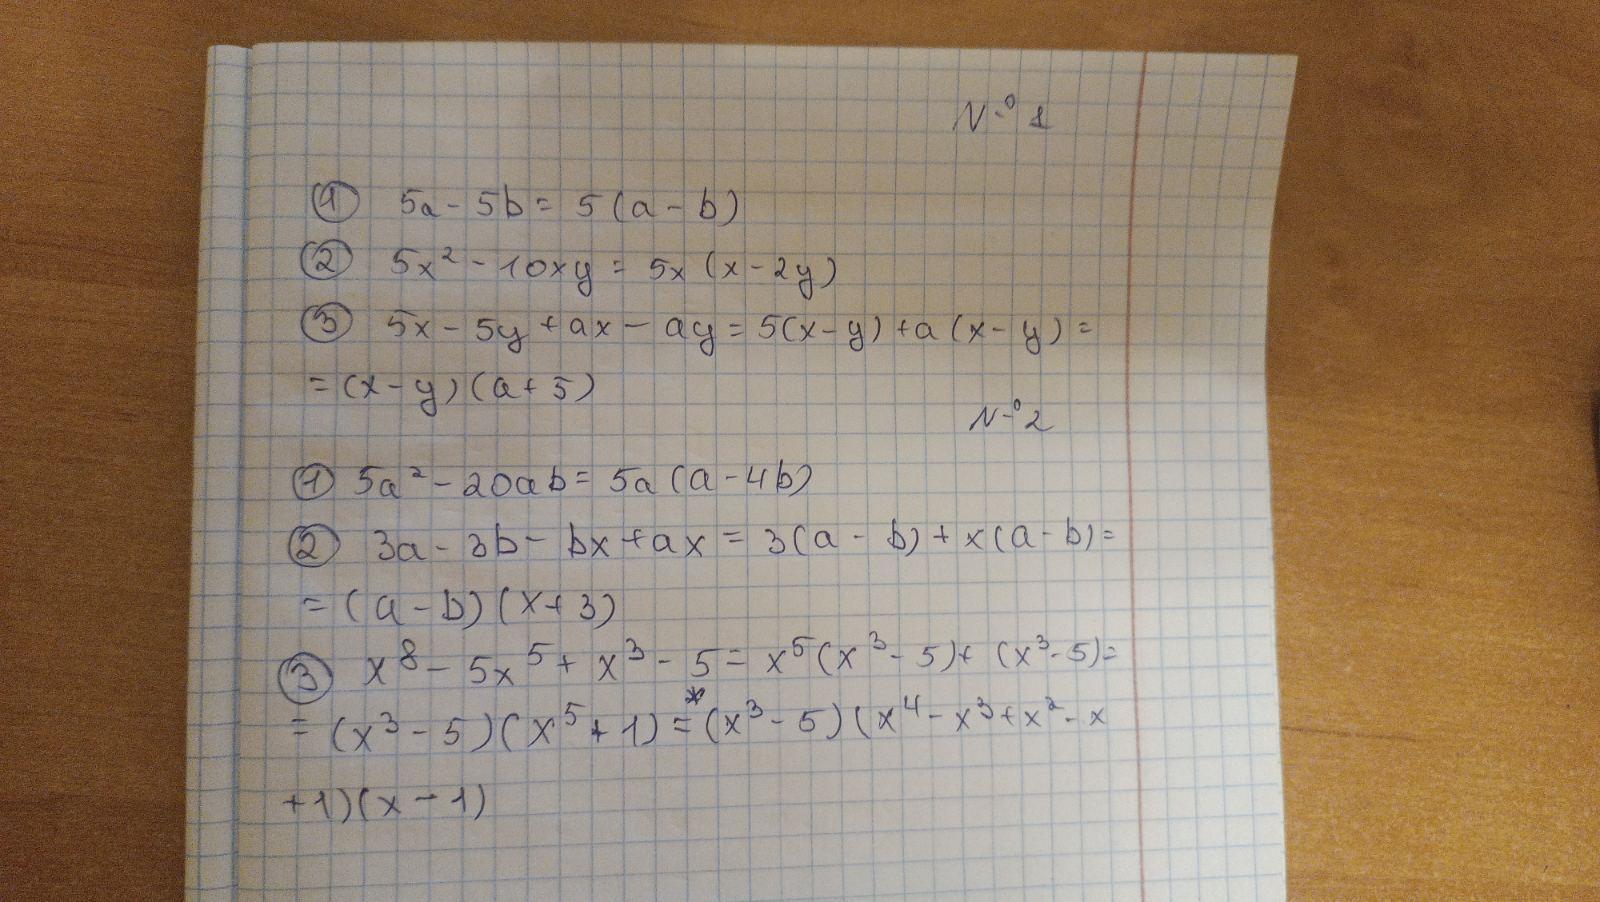 № 1
① 5a - 5b = 5(a - b)
② 5x² - 10xy = 5x(x - 2y)
③ 5x - 5y + ax - ay = 5(x - y) + a(x - y) =
= (x - y)(a + 5)
№ 2
① 5a² - 20ab = 5a(a - 4b)
② 3a - 3b - bx + ax = 3(a - b) + x(a - b) =
= (a - b)(x + 3)
③ x⁸ - 5x⁵ + x³ - 5 = x⁵(x³ - 5) + (x³ - 5) =
= (x³ - 5)(x⁵ + 1) =* (x³ - 5)(x⁴ - x³ + x² - x
+ 1)(x - 1)